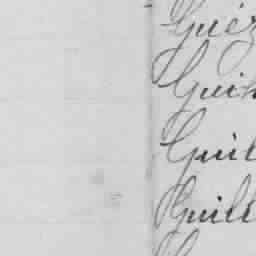 Guéz
Guih
Guil
Guill